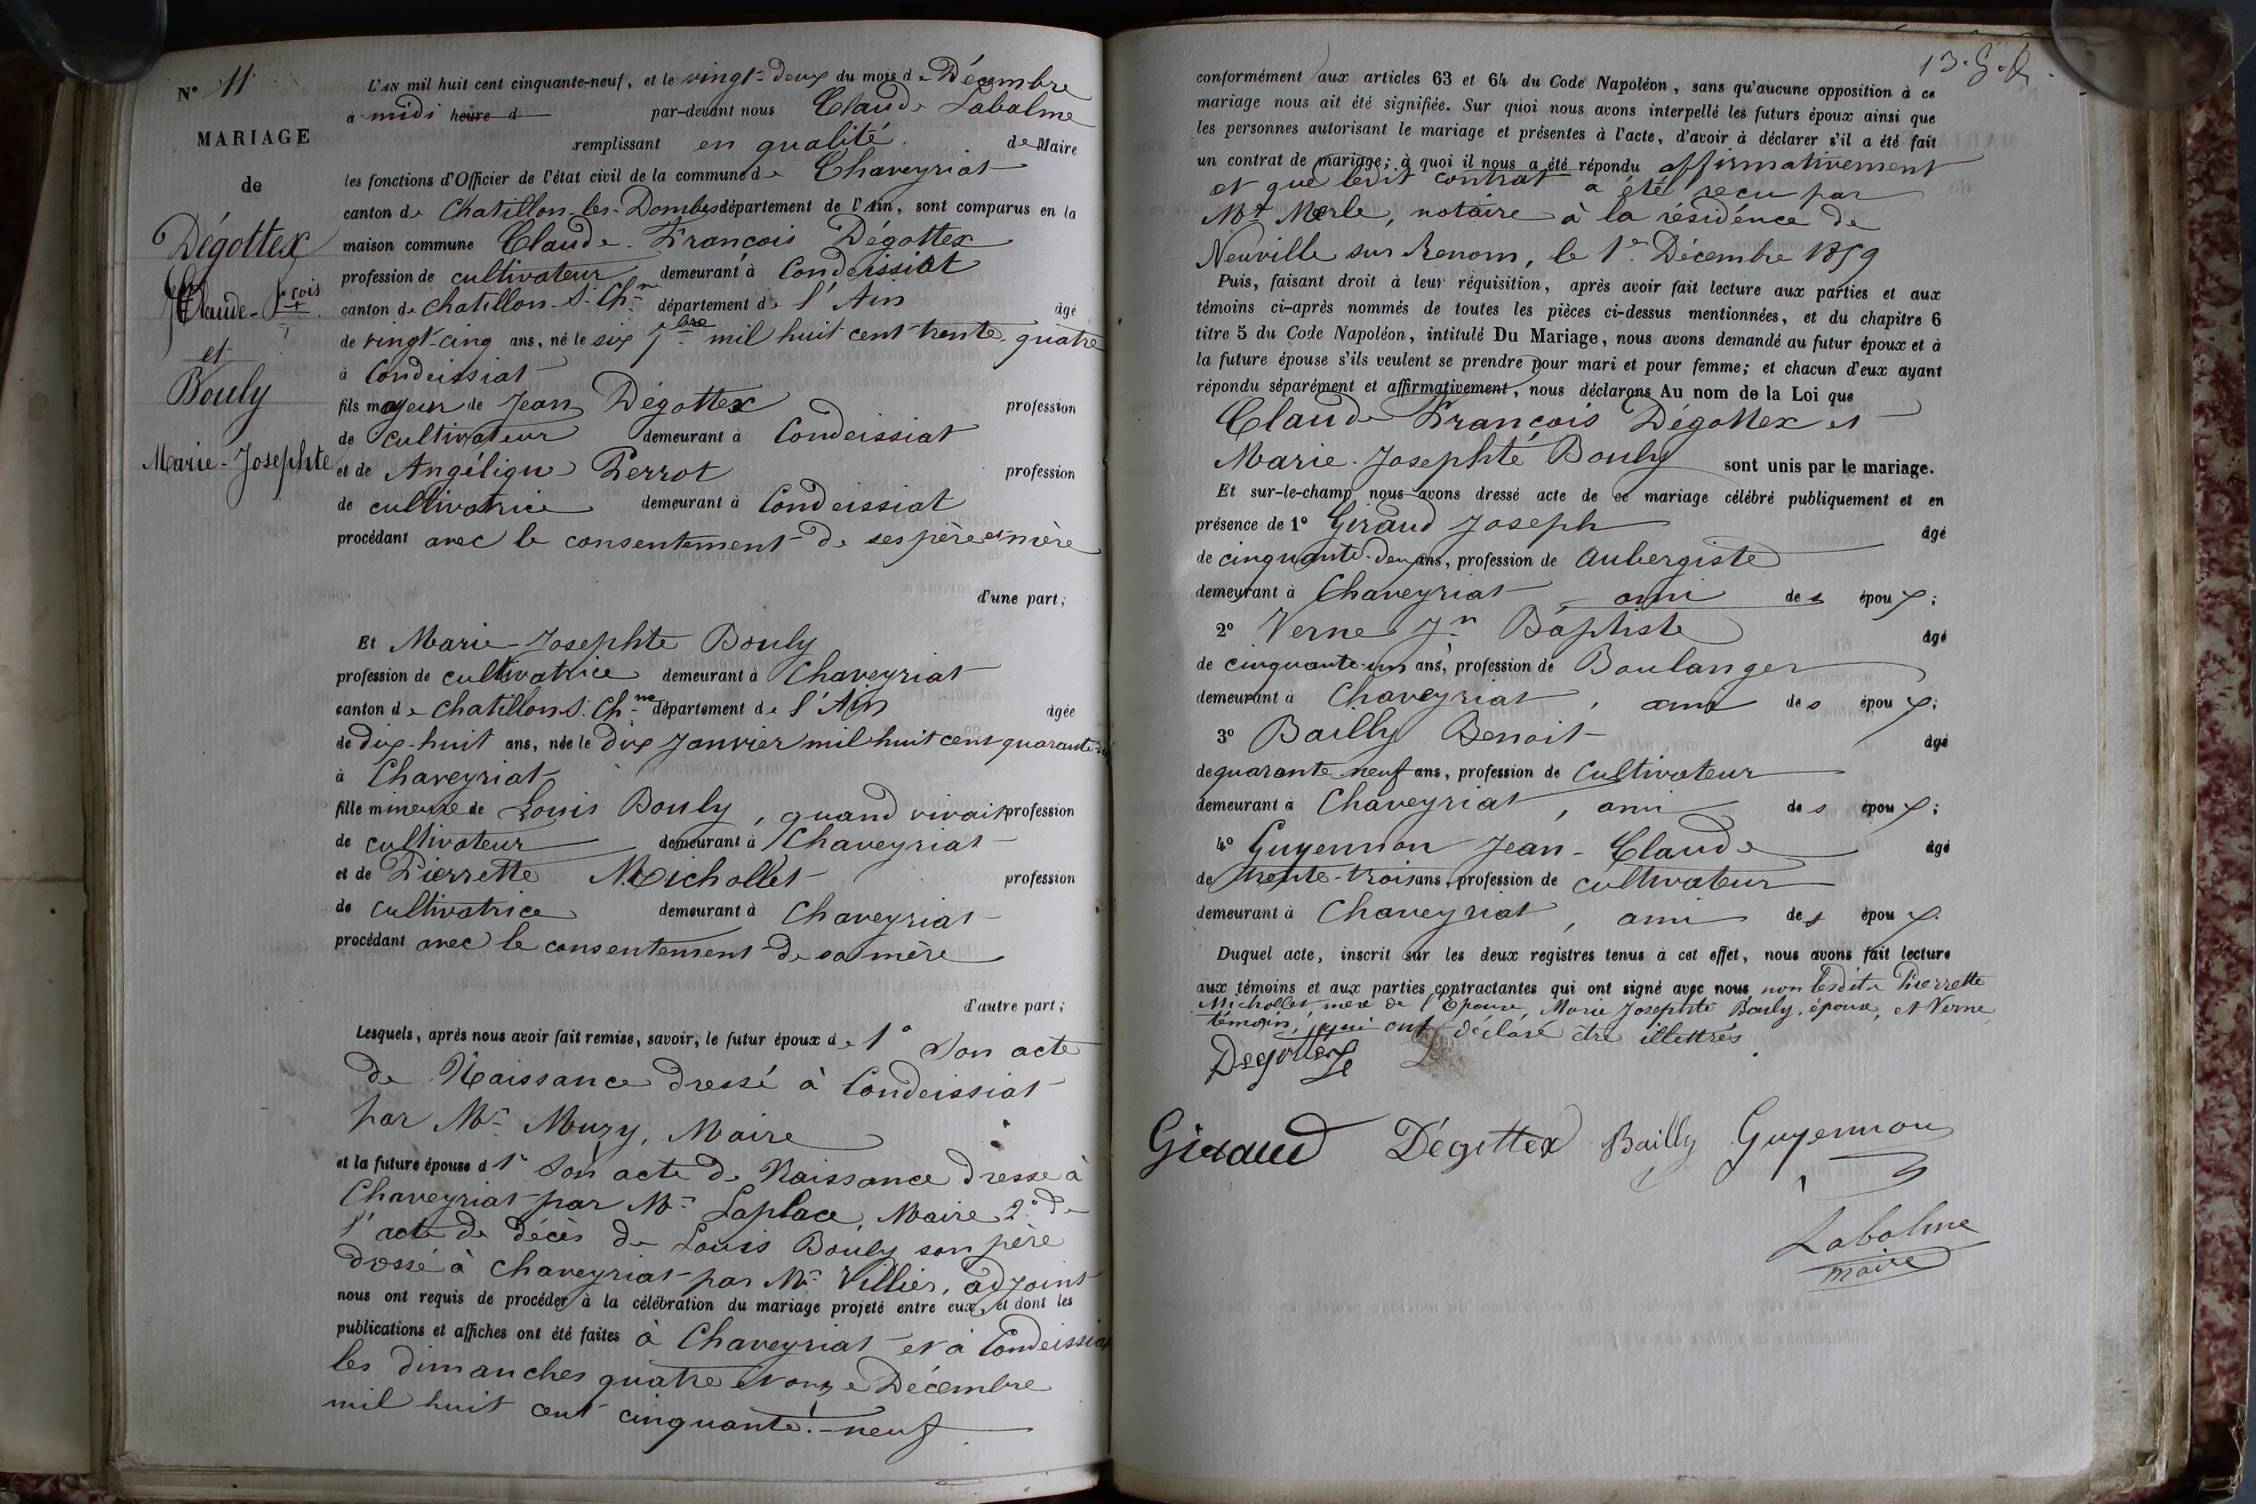 N° 11
MARIAGE
de
Dégottex
Claude-Fçois
et
Bouly
Marie-Josephte
L'AN mil huit cent cinquante-neuf, et le vingt-deux du mois de Décembre
à midi heure d par-devant nous Claude Labalme
remplissant en qualité de Maire
les fonctions d'Officier de l'état civil de la commune de Chaveyriat
canton de Chatillon-les-Dombes département de l'Ain, sont comparus en la
maison commune Claude-François Dégottex
profession de cultivateur demeurant à Condeissiat
canton de Chatillon-s.-Chne département de l'Ain âgé
de vingt-cinq ans, né le six 7bre mil huit cent trente-quatre
à Condeissiat
fils majeur de Jean Dégottex profession
de cultivateur demeurant à Condeissiat
et de Angélique Perrot profession
de cultivatrice demeurant à Condeissiat
procédant avec le consentement de ses père et mère
d'une part;
Et Marie-Josephte Bouly
profession de cultivatrice demeurant à Chaveyriat
canton de Chatillon s. Chne département de l'Ain âgée
de dix-huit ans, née le dix Janvier mil huit cent quarante-
à Chaveyriat
fille mineure de Louis Bouly, quand vivait profession
de cultivateur demeurant à Chaveyriat
et de Pierrette Michollet profession
de cultivatrice demeurant à Chaveyriat
procédant avec le consentement de sa mère
d'autre part;
Lesquels, après nous avoir fait remise, savoir, le futur époux de 1° Son acte
de Naissance dressé à Condeissiat
par Mr Muzy, Maire
et la future épouse d 1° Son acte de Naissance dressé à
Chaveyriat par Mr Laplace, Maire 2° de
l'acte de décès de Louis Bouly son père
dressé à Chaveyriat par Mr Villier, adjoint
nous ont requis de procéder à la célébration du mariage projeté entre eux, et dont les
publications et affiches ont été faites à Chaveyriat et à Condeissiat
les dimanches quatre et onze Décembre
mil huit cent cinquante-neuf
conformément aux articles 63 et 64 du Code Napoléon, sans qu'aucune opposition à ce
mariage nous ait été signifiée. Sur quoi nous avons interpellé les futurs époux ainsi que
les personnes autorisant le mariage et présentes à l'acte, d'avoir à déclarer s'il a été fait
un contrat de mariage; à quoi il nous a été répondu affirmativement
et que ledit contrat a été reçu par
Mt Merle, notaire à la résidence de
Neuville sur Renom, le 1er Décembre 1859
Puis, faisant droit à leur réquisition, après avoir fait lecture aux parties et aux
témoins ci-après nommés de toutes les pièces ci-dessus mentionnées, et du chapitre 6
titre 5 du Code Napoléon, intitulé Du Mariage, nous avons demandé au futur époux et à
la future épouse s'ils veulent se prendre pour mari et pour femme; et chacun d'eux ayant
répondu séparément et affirmativement, nous déclarons Au nom de la Loi que
Claude François Dégottex et
Marie-Josephte Bouly sont unis par le mariage.
Et sur-le-champ nous avons dressé acte de ce mariage célébré publiquement et en
présence de 1° Giraud Joseph âgé
de cinquante-deux ans, profession de Aubergiste
demeurant à Chaveyriat, ami des époux;
2° Verne Jn Baptiste âgé
de cinquante-un ans, profession de Boulanger
demeurant à Chaveyriat, ami des époux;
3° Bailly Benoit âgé
de quarante-neuf ans, profession de Cultivateur
demeurant à Chaveyriat, ami des époux;
4° Guyennon Jean-Claude âgé
de trente-trois ans, profession de cultivateur
demeurant à Chaveyriat, ami des époux.
Duquel acte, inscrit sur les deux registres tenus à cet effet, nous avons fait lecture
aux témoins et aux parties contractantes qui ont signé avec nous non lesdits Pierrette
Michollet mère de l'Epouse, Marie Josephte Bouly, épouse, et Verne
témoin, qui ont déclaré être illettrés.
Giraud Dégottex Bailly Guyennon
Labalme
maire